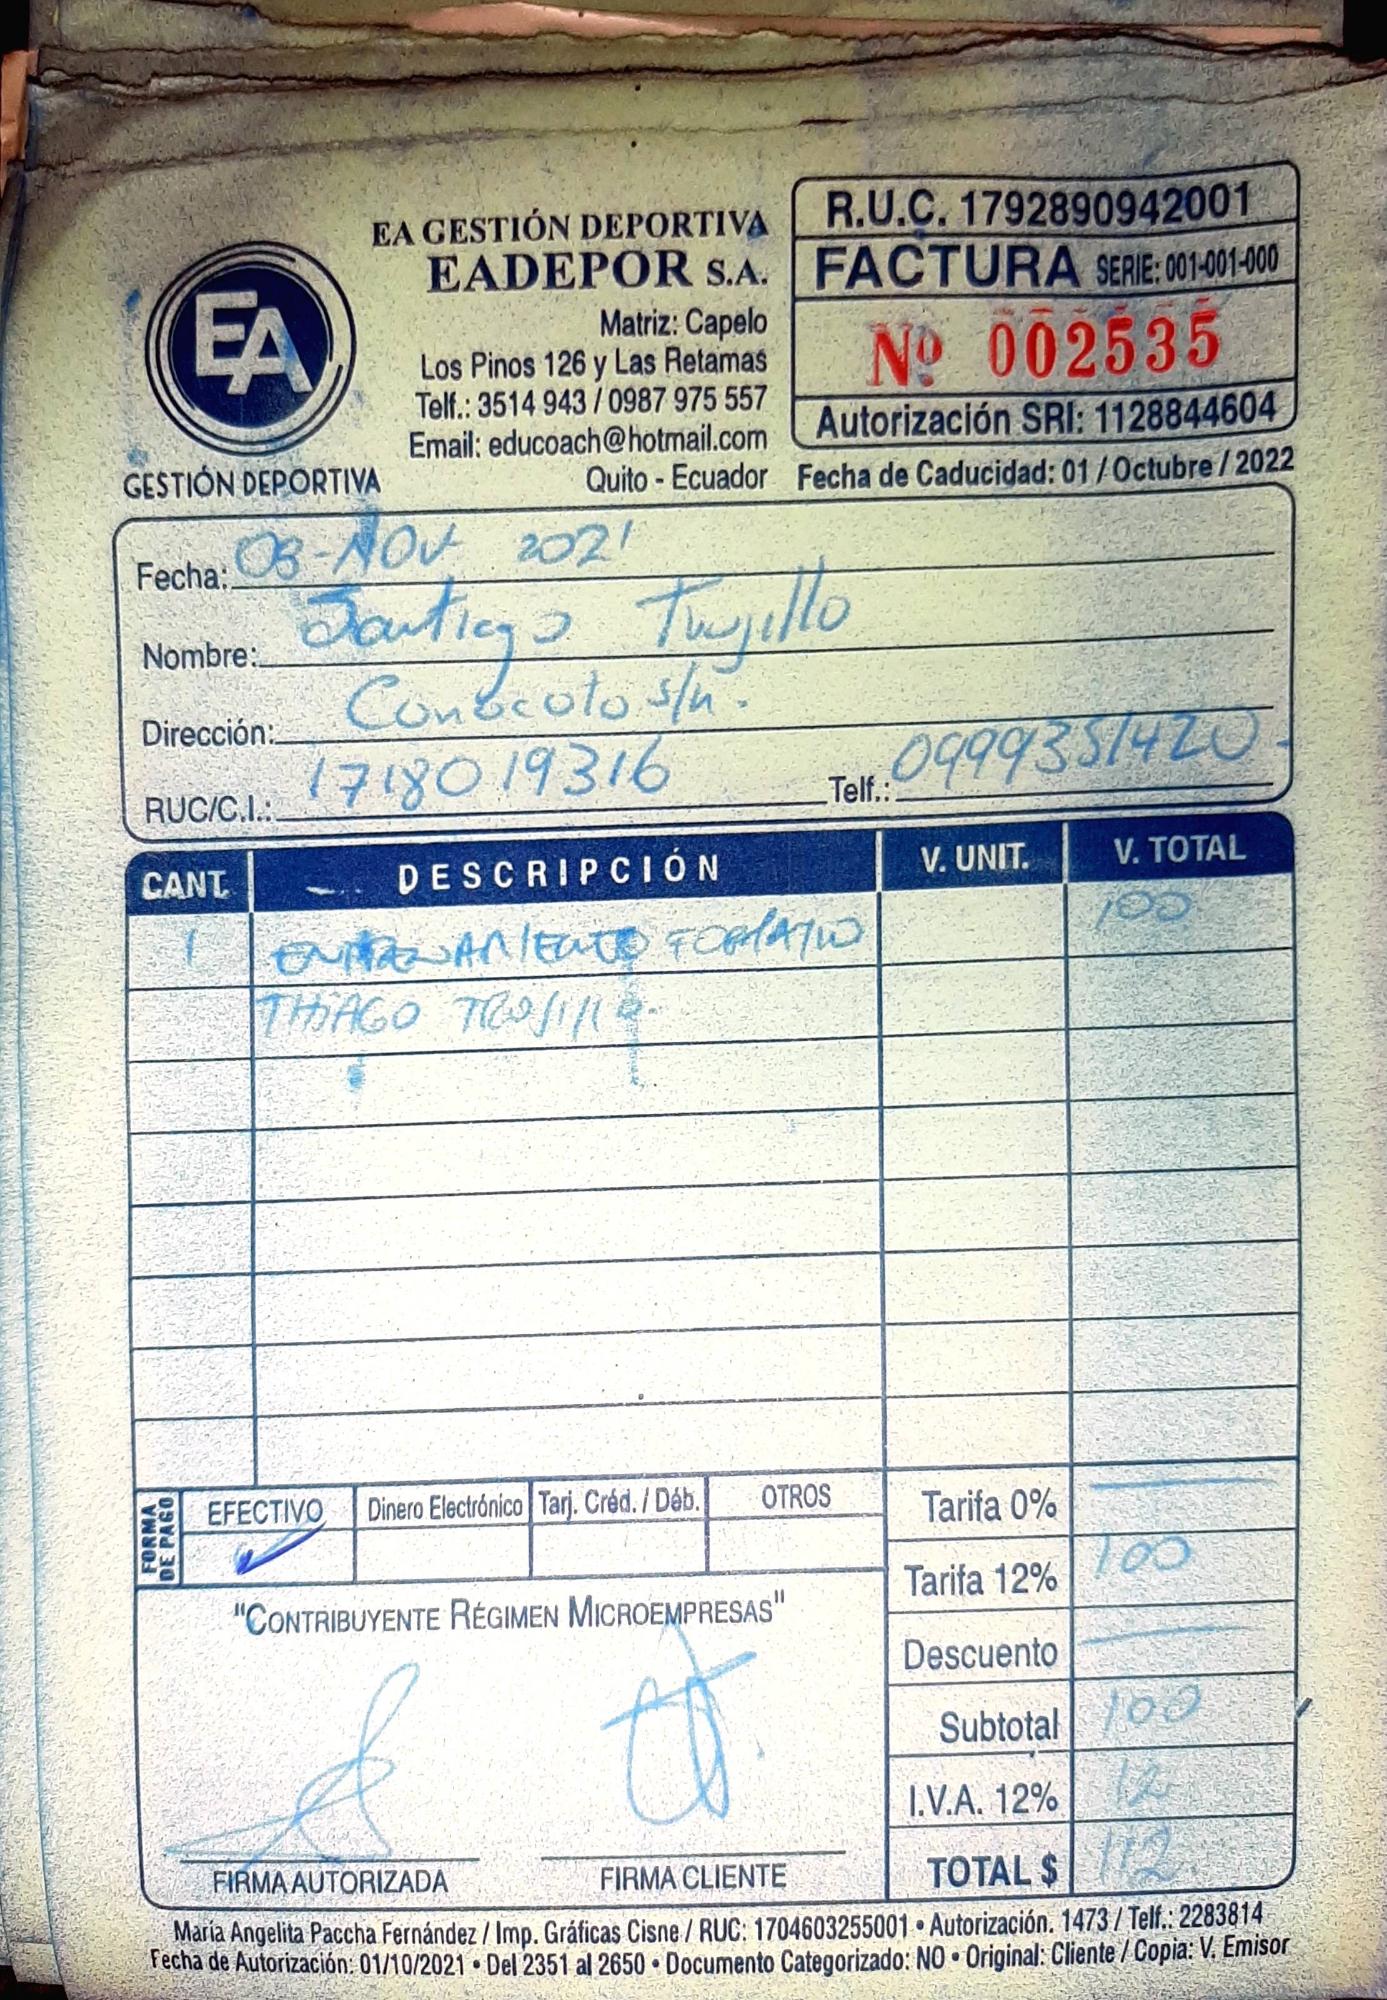 EA GESTIÓN DEPORTIVA
EADEPOR S.A.
Matriz: Capelo
Los Pinos 126 y Las Retamas
Telf.: 3514 943 / 0987 975 557
Email: educoach@hotmail.com
Quito - Ecuador
EA
GESTIÓN DEPORTIVA
R.U.C. 1792890942001
FACTURA SERIE: 001-001-000
Nº 002535
Autorización SRI: 1128844604
Fecha de Caducidad: 01 / Octubre / 2022
Fecha: 03-NOV 2021
Nombre: Santiago Trujillo
Dirección: Conocoto s/n.
RUC/C.I.: 1718019316 Telf.: 0999351420
CANT. DESCRIPCIÓN V. UNIT. V. TOTAL
1 ENTRENAMIENTO 100
THIAGO TRUJILLO
FORMA DE PAGO
EFECTIVO Dinero Electrónico Tarj. Créd. / Déb. OTROS
"CONTRIBUYENTE RÉGIMEN MICROEMPRESAS"
Tarifa 0%
Tarifa 12% 100
Descuento
Subtotal 100
I.V.A. 12% 12
TOTAL $ 112
FIRMA AUTORIZADA FIRMA CLIENTE
María Angelita Paccha Fernández / Imp. Gráficas Cisne / RUC: 1704603255001 • Autorización. 1473 / Telf.: 2283814
Fecha de Autorización: 01/10/2021 • Del 2351 al 2650 • Documento Categorizado: NO • Original: Cliente / Copia: V. Emisor